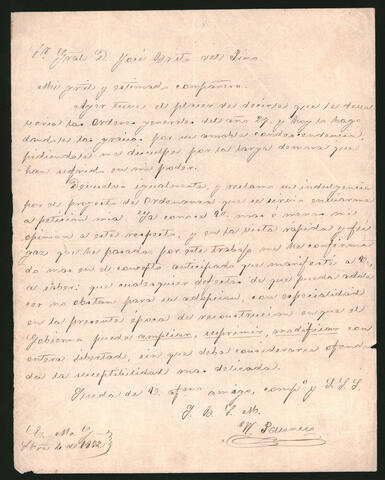 Sr. Gral. D. José Brito del Pino.
Mi gral y estimado compañero.
Ayer tuve el placer de decirle que le devol
veria las Ordenes generales del año 27, y hoy lo hago
dandole las gracias por su amable condescendencia,
pidiendole me disculpe por la larga demora que
han sufrido en mi poder.
Devuelvo igualmente, y reclamo su indulgencia
por el proyecto de Ordenanza que se sirvió enviarme
a peticion mia. Ya conoce V. mas ó menos mi
opinion a este respecto, y en la vista rapida y fu
gaz que he pasado por este trabajo me he confirma
do mas en el concepto anticipado que manifesté a V.
a saber: que cualesquier defectos de que pueda adole
cer no obstan para su adopcion, con especialidad
en la presente época de reconstruccion en que el
Gobierno puede ampliar, suprimir, modificar con
entera libertad, sin que deba considerarse ofendi
da la suceptibilidad mas delicada.
Queda de V. afmo amigo, compo y S. S. S.
Q. B. S. M.
W. Paunero
S/C. Mo
de 1852